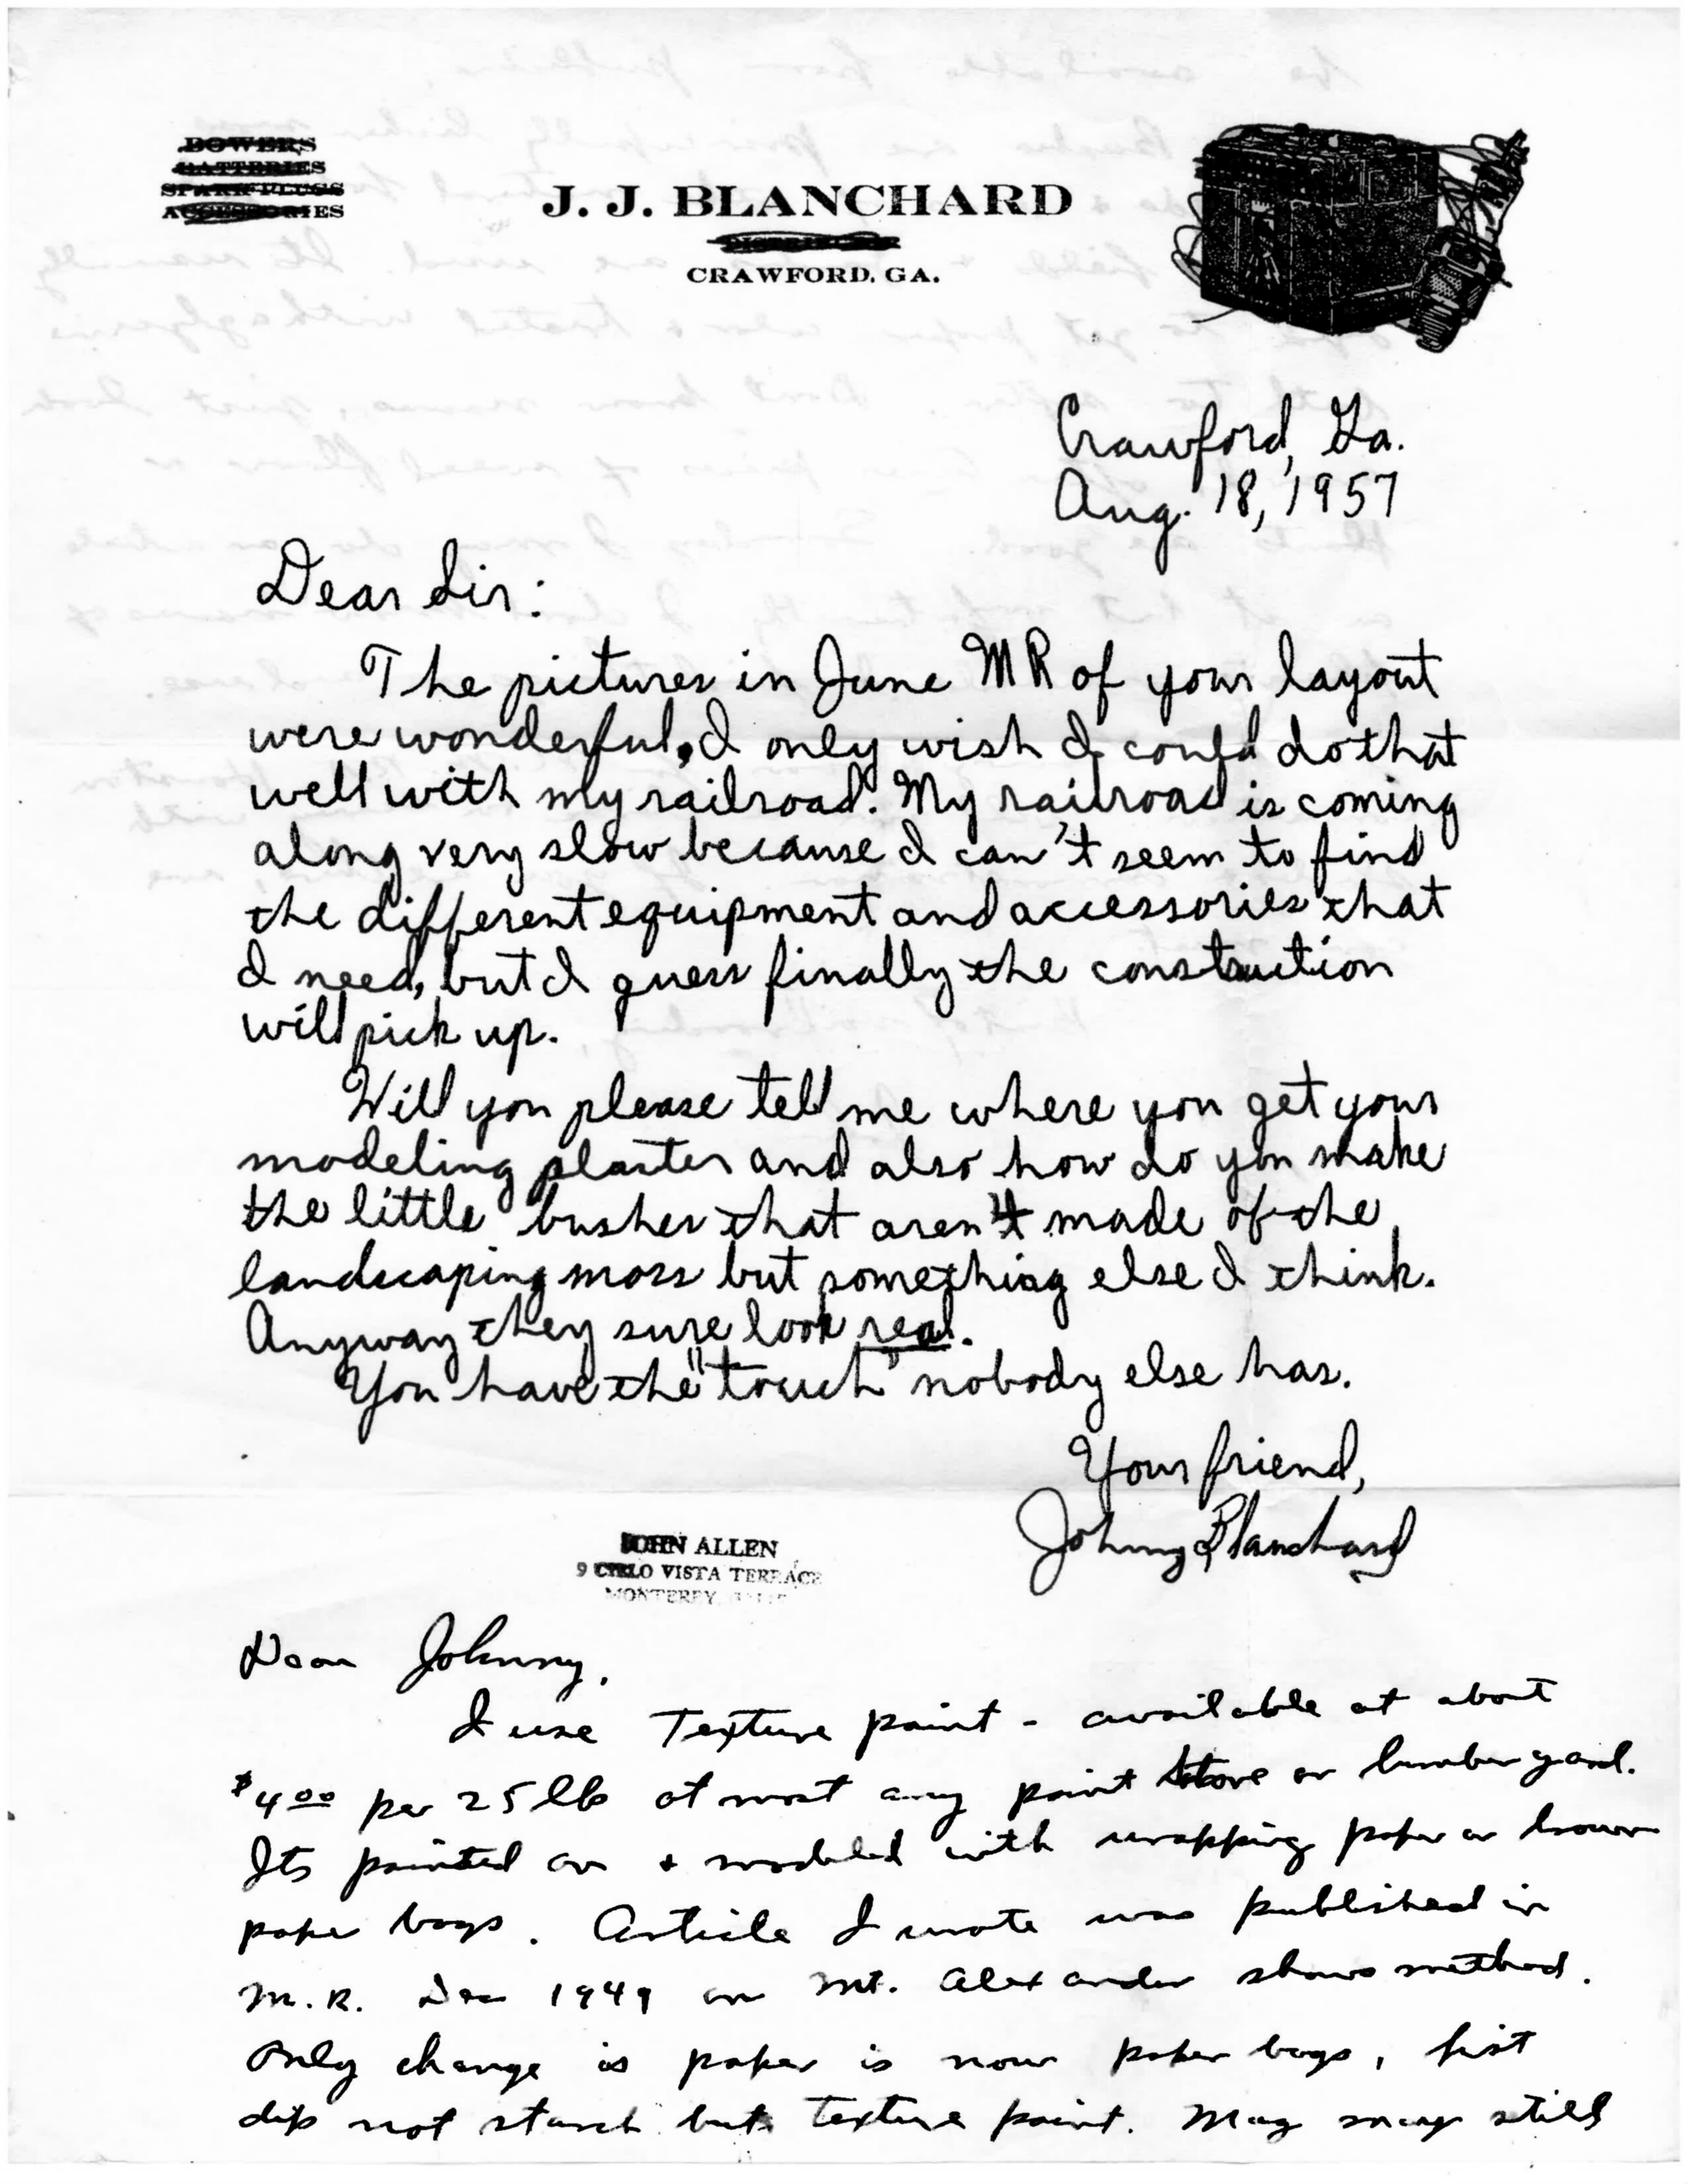 BOWERS
BATTERIES
SPARK PLUGS
ACCESSORIES
J. J. BLANCHARD
DISTRIBUTOR
CRAWFORD, GA.
Crawford, Ga.
Aug. 18, 1957
Dear Sir:
The pictures in June MR of your layout
were wonderful, I only wish I could do that
well with my railroad. My railroad is coming
along very slow because I can't seem to find
the different equipment and accessories that
I need, but I guess finally the construction
will pick up.
Will you please tell me where you get your
modeling plaster and also how do you make
the little bushes that aren't made of the
landscaping moss but something else I think.
Anyway they sure look real.
You have the "touch" nobody else has.
Your friend,
Johnny Blanchard
JOHN ALLEN
9 CIELO VISTA TERRACE
MONTEREY, CALIF
Dear Johnny,
I use Texture paint - available at about
$4.00 per 25 lb at most any paint store or lumber yard.
Its painted on & modeled with wrapping paper or brown
paper bags. Article I wrote was published in
M.R. Dec 1949 on Mt. Alexander shows method.
Only change is paper is now paper bags, first
dip not starch but texture paint. Mag may still